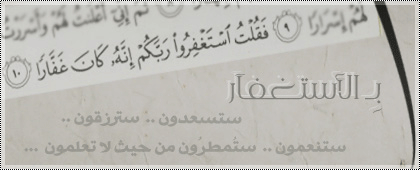 لَهُمْ إِسْرَارًا ٩ ثُمَّ إِنِّي أَعْلَنتُ لَهُمْ وَأَسْرَرْتُ
فَقُلْتُ ٱسْتَغْفِرُوا۟ رَبَّكُمْ إِنَّهُۥ كَانَ غَفَّارًا ١٠
بـ الأستغفـار
ستسعدون .. سترزقون ..
ستنعمون .. ستمطرون من حيث لا تعلمون ...